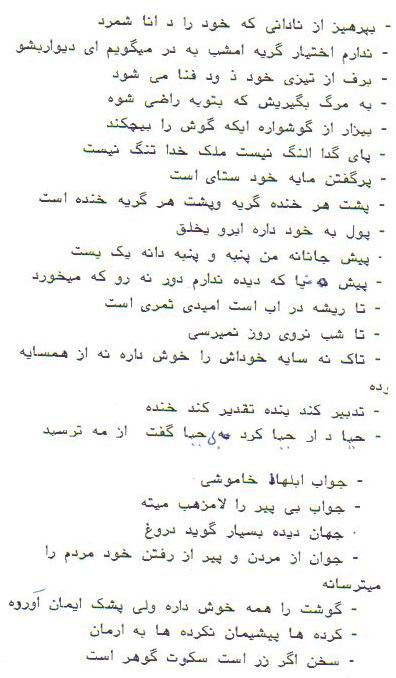 - بپرهیز از نادانی که خود را د انا شمرد
- ندارم اختیار گریه امشب به در میگویم ای دیواربشو
- برف از تیزی خود ذ ود فنا می شود
- به مرگ بگیریش که بتوبه راضی شوه
- بیزار از گوشواره ایکه گوش را بیچکند
- پای گدا النگ نیست ملک خدا تنگ نیست
- پرگفتن مایه خود ستای است
- پشت هر خنده گریه وپشت هر گریه خنده است
- پول به خود داره ابرو بخلق
· پیش جانانه من پنبه و پنبه دانه یک یست
- پیش که دیده ندارم دور نه رو که میخورد
- تا ریشه در اب است امیدی ثمری است
- تا شب نروی روز نمیرسی
- تاک نه سایه خوداش را خوش داره نه از همسایه
رده
- تدبیر کند بنده تقدیر کند خنده
- حیا د ار حیا کرد حیا گفت از مه ترسید
- جواب ابلهان خاموشی
- جواب بی پیر را لامزهب میته
· جهان دیده بسیار گوید دروغ
- جوان از مردن و پیر از رفتن خود مردم را
میترسانه
- گوشت را همه خوش داره ولی پشک ایمان آوروه
- کرده ها پیشیمان نکرده ها به ارمان
- سخن اگر زر است سکوت گوهر است